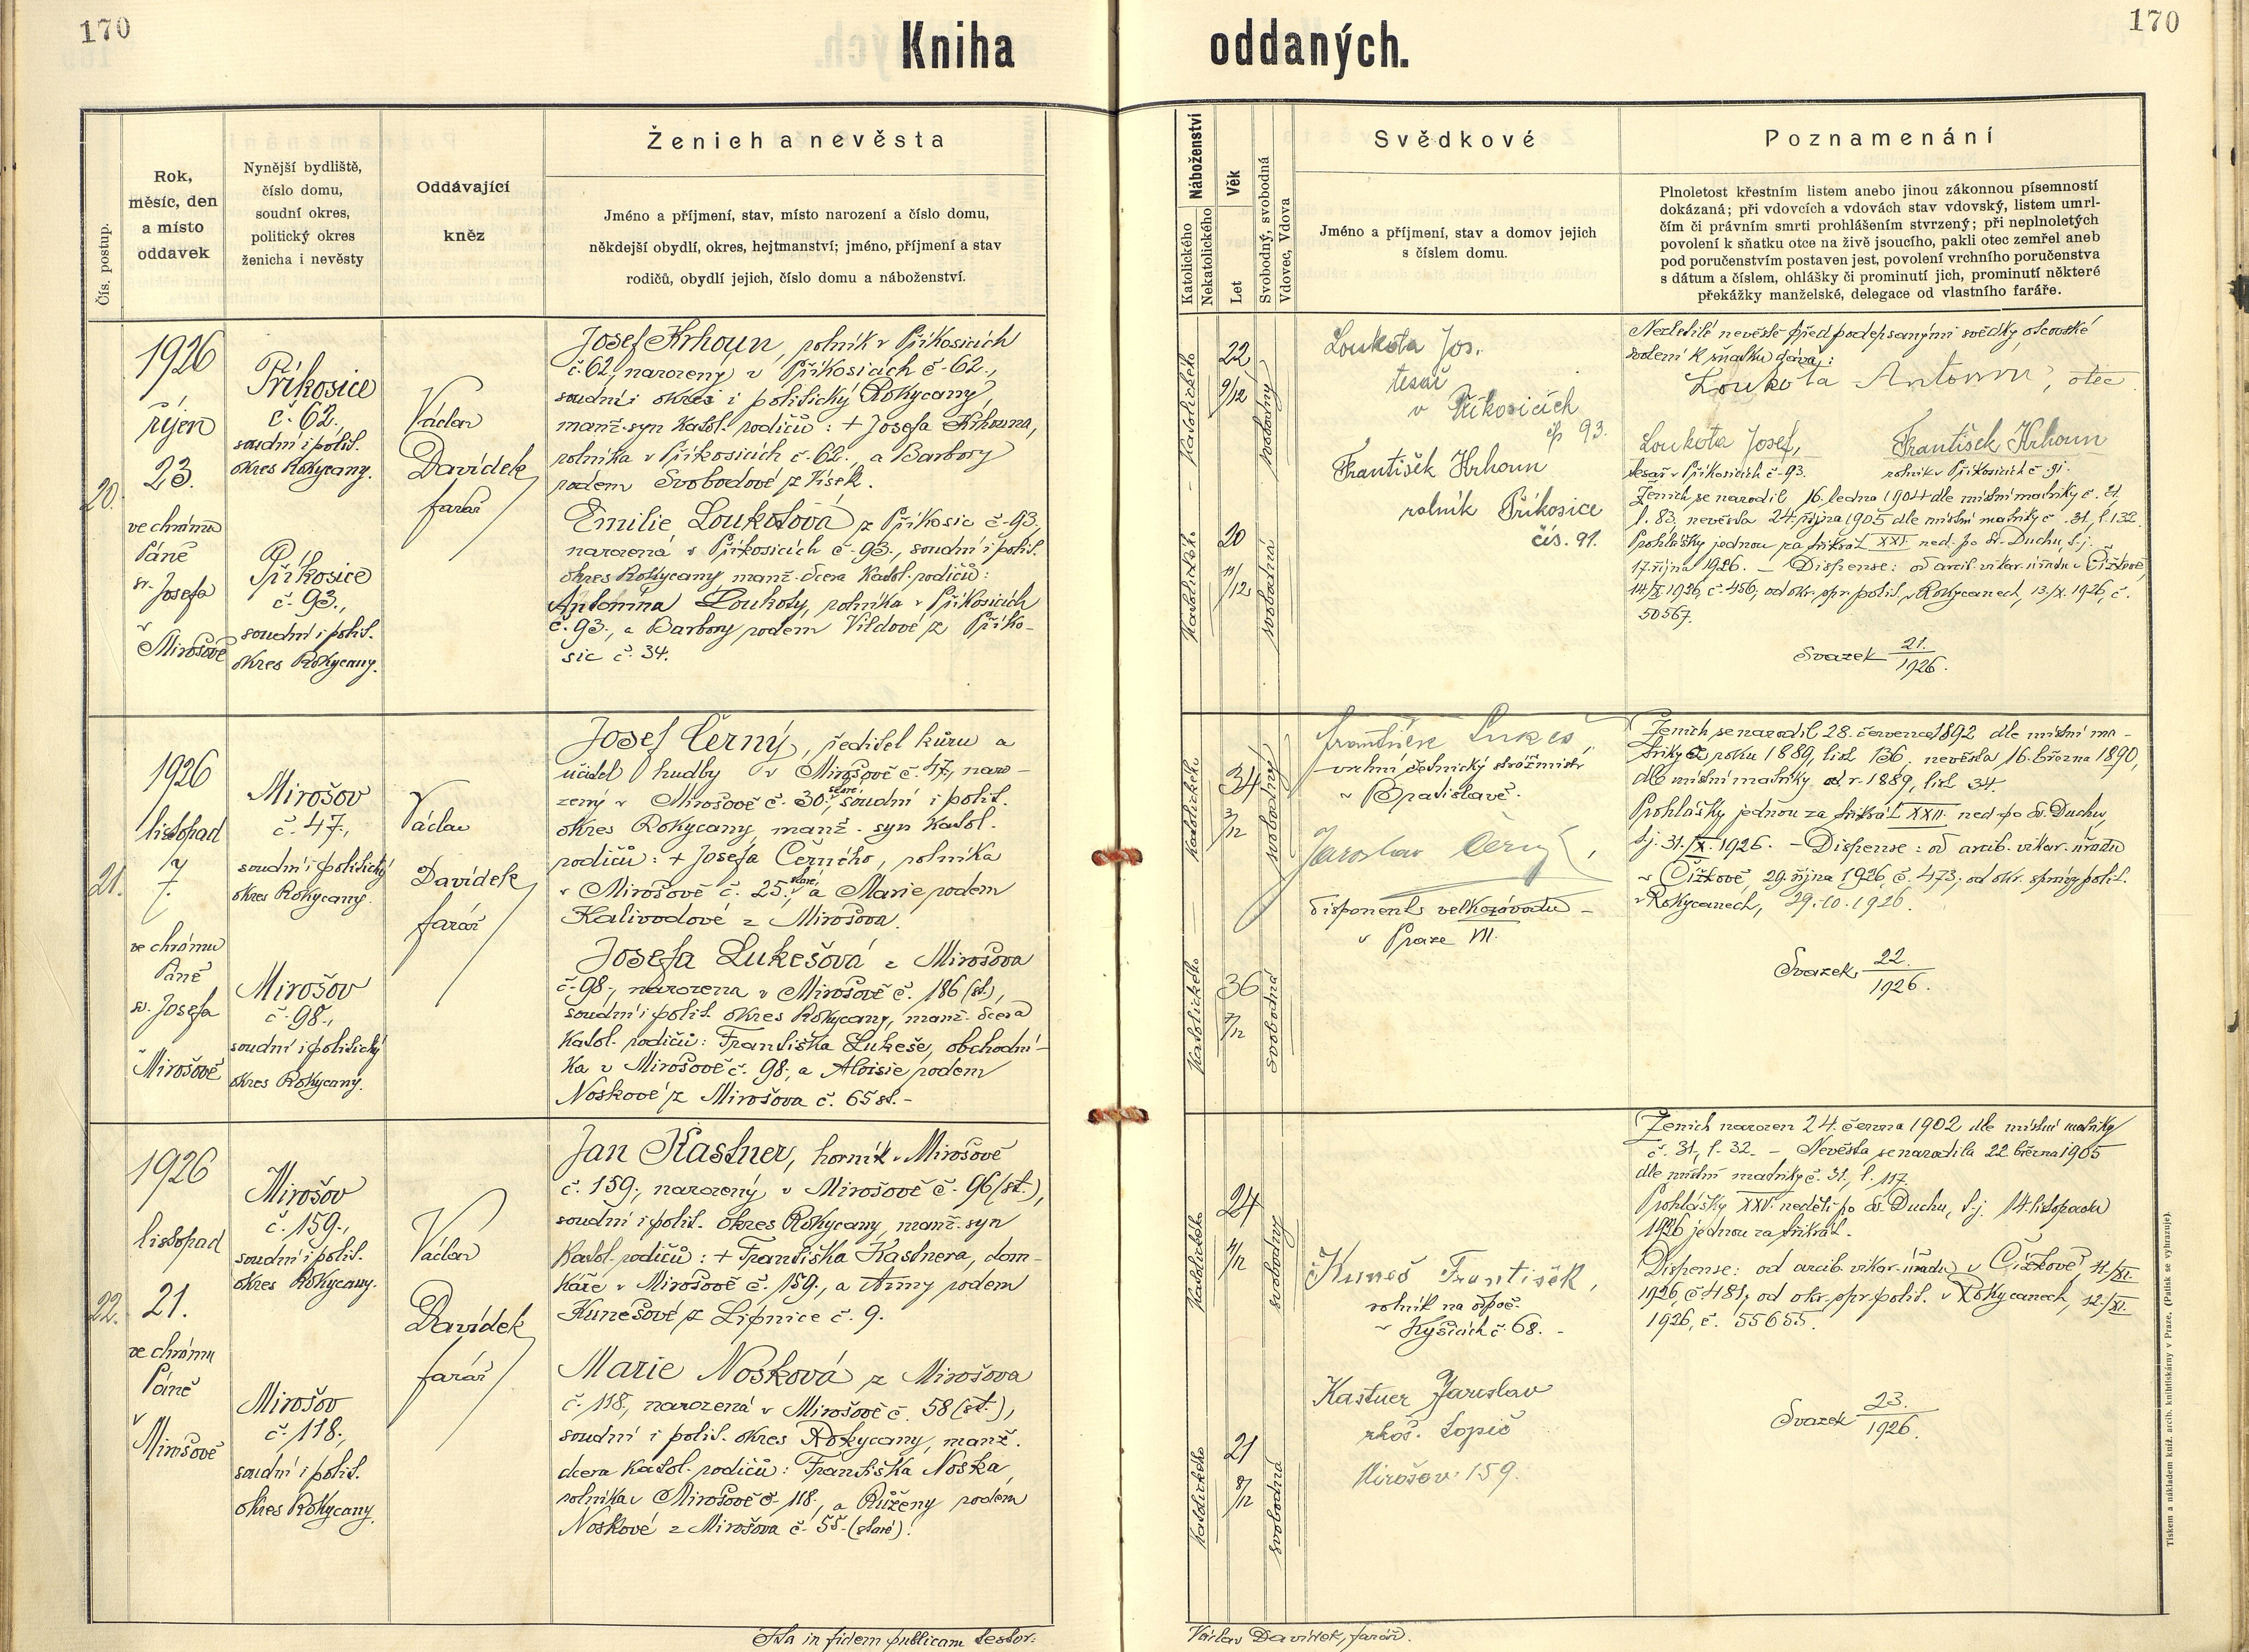 170
Kniha oddaných.
170
Čís. postup.
Rok,
měsíc, den
a místo
oddavek
Nynější bydliště,
číslo domu,
soudní okres,
politický okres
ženicha i nevěsty
Oddávající
kněz
Ženich a nevěsta
Jméno a příjmení, stav, místo narození a číslo domu,
někdejší obydlí, okres, hejtmanství; jméno, příjmení a stav
rodičů, obydlí jejich, číslo domu a náboženství.
Náboženství
Katolického
Nekatolického
Věk
Let
Svobodný, svobodná
Vdovec, Vdova
Svědkové
Jméno a příjmení, stav a domov jejich
s číslem domu.
Poznamenání
Plnoletost křestním listem anebo jinou zákonnou písemností
dokázaná; při vdovcích a vdovách stav vdovský, listem umrl-
čím či právním smrti prohlášením stvrzený; při neplnoletých
povolení k sňatku otce na živě jsoucího, pakli otec zemřel aneb
pod poručenstvím postaven jest, povolení vrchního poručenstva
s dátum a číslem, ohlášky či prominutí jich, prominutí některé
překážky manželské, delegace od vlastního faráře.
20.
1926
říjen
23.
ve chrámu
Páně
sv. Josefa
v
Mirošově
Příkosice
č. 62.,
soudní i polit.
okres Rokycany.
Příkosice
č. 93.,
soudní i polit.
okres Rokycany.
Václav
Davídek
farář
Josef Krhoun, rolník v Příkosicích
č. 62, narozený v Příkosicích č. 62.,
soudní okres i politický Rokycany,
manž. syn katol. rodičů: + Josefa Krhouna,
rolníka v Příkosicích č. 62., a Barbory
rodem Svobodové z Vísek.
Emilie Loukotová z Příkosic č. 93.,
narozená v Příkosicích č. 93., soudní i polit.
okres Rokycany, manž. dcera katol. rodičů:
Antonína Loukoty, rolníka v Příkosicích
č. 93., a Barbory rodem Vildové z Příko-
sic č. 34.
katolického
22
9/12
svobodný
katolického
20
11/12
svobodná
Loukota Jos.
tesař
v Příkosicích
čp 93.
František Krhoun
rolník Příkosice
čís. 91.
Nezletilé nevěstě před podepsanými svědky otcovské
svolení k sňatku dává:
Loukota Antonín, otec
Loukota Josef, František Krhoun
tesař v Příkosicích č. 93. rolník v Příkosicích č. 91.
Ženich se narodil 16. ledna 1904 dle místní matriky č. 31.
l. 83, nevěsta 24. října 1905 dle místní matriky č. 31., l. 132.
Prohlášky jednou za třikrát XXI. ned. po sv. Duchu, t. j.
17. října 1926. – Dispense: od arcib. vikar. úřadu v Čížkově,
14/X. 1926, č. 456, od okr. spr. polit. v Rokycanech, 13/X. 1926, č.
50567.
Svazek 21./1926.
21.
1926
listopad
7.
ve chrámu
Páně
sv. Josefa
v
Mirošově
Mirošov
č. 47.,
soudní i politický
okres Rokycany.
Mirošov
č. 98.,
soudní i politický
okres Rokycany.
Václav
Davídek,
farář
Josef Černý, ředitel kůru a
učitel hudby v Mirošově č. 47., naro-
zený v Mirošově č. 30., staré, soudní i polit.
okres Rokycany, manž. syn katol.
rodičů: + Josefa Černého, rolníka
v Mirošově č. 25., staré, a Marie rodem
Kalivodové z Mirošova.
Josefa Lukešová z Mirošova
č. 98., narozena v Mirošově č. 186 (st.),
soudní i polit. okres Rokycany, manž. dcera
katol. rodičů: Františka Lukeše, obchodní-
ka v Mirošově č. 98., a Aloisie rodem
Noskové z Mirošova č. 65 st. –
katolického
34
3/12
svobodný
katolického
36
7/12
svobodná
František Lukeš,
vrchní četnický strážmistr
v Bratislavě.
Jaroslav Černý,
disponent velkozávodu –
v Praze VII.
Ženich se narodil 28. července 1892 dle místní ma-
triky z roku 1889, list 136, nevěsta 16. března 1890,
dle místní matriky od r. 1889, list 34.
Prohlášky jednou za třikrát XXII. ned. po sv. Duchu,
t. j. 31./X. 1926. – Dispense: od arcib. vikar. úřadu
v Čížkově, 29. října 1926, č. 473, od okr. správy polit.
v Rokycanech, 29. 10. 1926.
Svazek 22./1926.
22.
1926
listopad
21.
ve chrámu
Páně
v
Mirošově
Mirošov
č. 159.,
soudní i polit.
okres Rokycany.
Mirošov
č. 118.,
soudní i polit.
okres Rokycany.
Václav
Davídek
farář
Jan Kastner, horník v Mirošově
č. 159., narozený v Mirošově č. 96 (st.),
soudní i polit. okres Rokycany, manž. syn
katol. rodičů: + Františka Kastnera, dom-
káře v Mirošově č. 159., a Anny rodem
Kunešové z Lipnice č. 9.
Marie Nosková z Mirošova
č. 118., narozená v Mirošově č. 58 (st.),
soudní i polit. okres Rokycany, manž.
dcera katol. rodičů: Františka Noska,
rolníka v Mirošově č. 118., a Růženy rodem
Noskové z Mirošova č. 55 (staré).
katolického
24
4/12
svobodný
katolického
21
8/12
svobodná
Kuneš František,
rolník na odpoč.
v Kyšicích č. 68. –
Kastner Jaroslav
Topič
Mirošov 159.
Ženich narozen 24. června 1902 dle místní matriky
č. 31, l. 32. – Nevěsta se narodila 22. března 1905
dle místní matriky č. 31., l. 117.
Prohlášky XXV. neděli po sv. Duchu, t. j. 14. listopadu
1926 jednou za třikrát.
Dispense: od arcib. vikar. úřadu v Čížkově, 11./XI.
1926, č. 481, od okr. spr. polit. v Rokycanech, 12./XI.
1926, č. 55655.
Svazek 23./1926.
Ita in fidem publicam testor:
Václav Davídek, farář.
Tiskem a nákladem kníž. arcib. knihtiskárny v Praze. (Patisk se vyhrazuje).